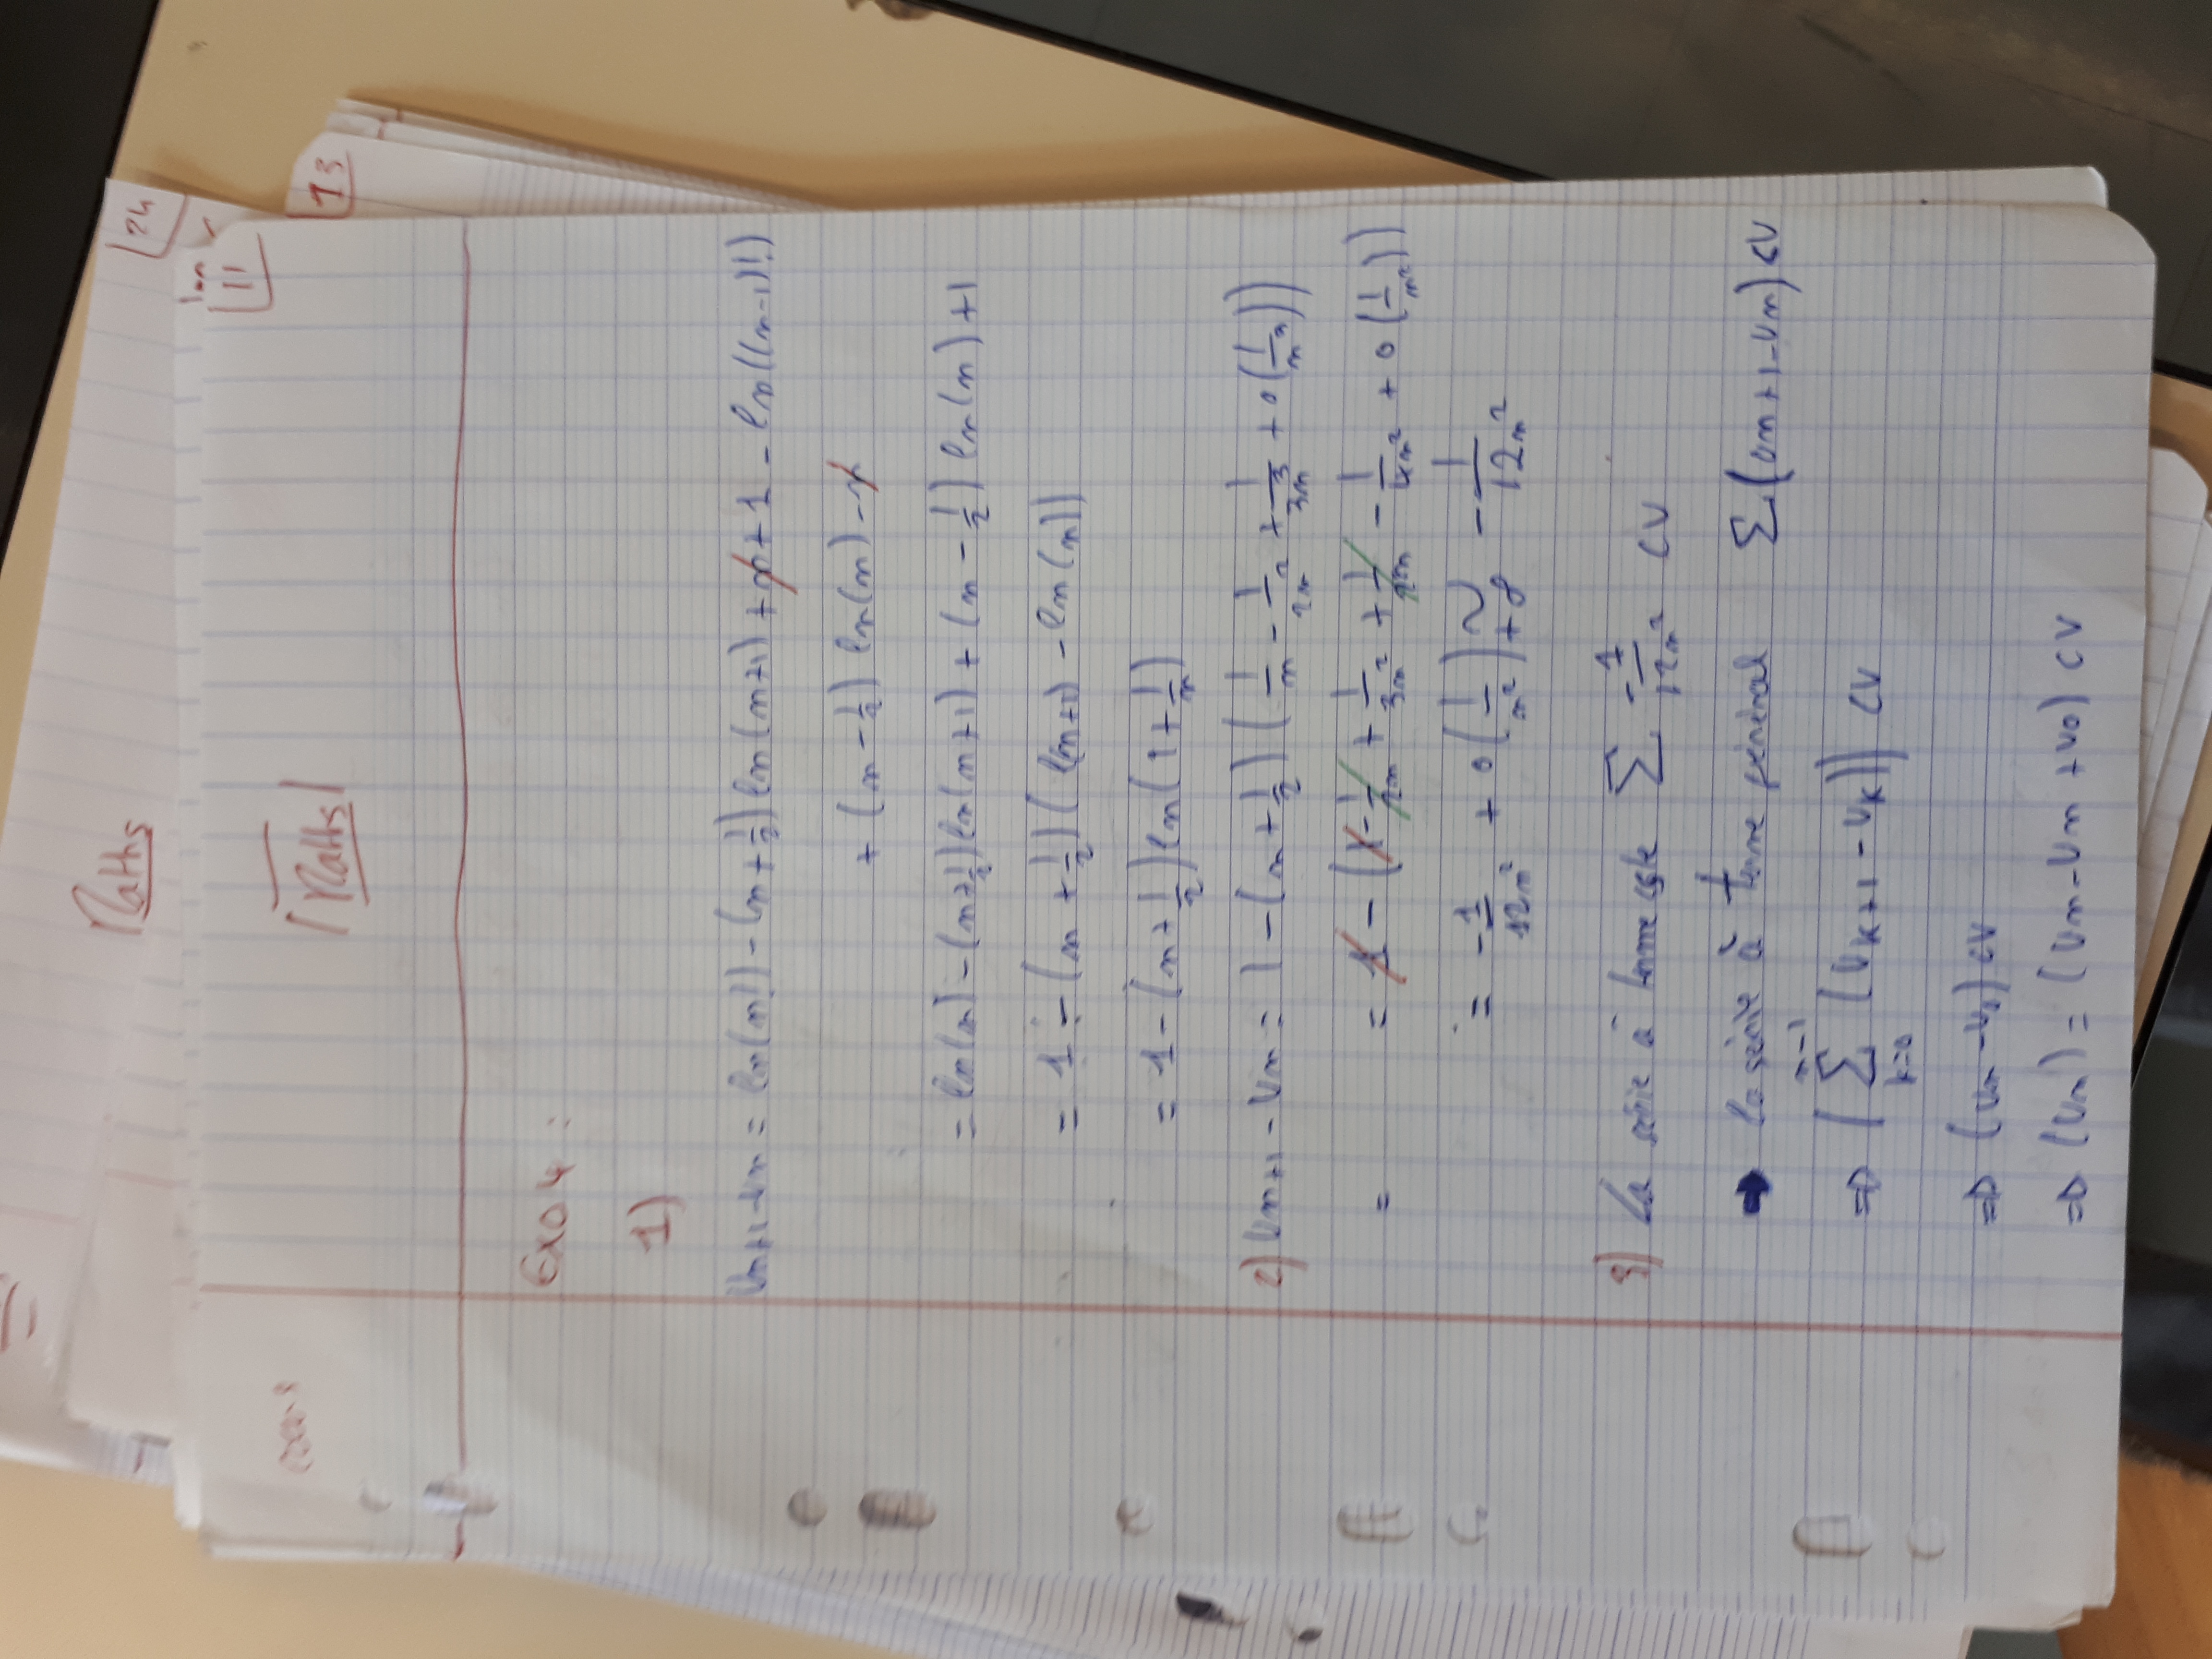 Maths
24
11
cours
Maths
13
Exo 4 :
1)
Un+1 - Un = ln(n!) - (n + 1/2) ln(n+1) + n + 1 - ln((n-1)!)
+ (n - 1/2) ln(n) - n
= ln(n) - (n + 1/2) ln(n+1) + (n - 1/2) ln(n) + 1
= 1 - (n + 1/2) ( ln(n+1) - ln(n))
= 1 - (n + 1/2) ln(1 + 1/n)
2) Un+1 - Un = 1 - (n + 1/2) ( 1/n - 1/2n² + 1/3n³ + o(1/n³))
= = 1 - (1 - 1/2n + 1/3n² + 1/2n - 1/4n² + o(1/n²))
= -1/12n² + o(1/n²) ~ +∞ - 1/12n²
3) La série à terme cste ∑ -1/12n² CV
➡ la série à terme général ∑(Un+1 - Un) CV
=> ( n-1 ∑ k=0 (Uk+1 - Uk)) CV
=> (Un - U0) CV
=> (Un) = (Un - Un + U0) CV